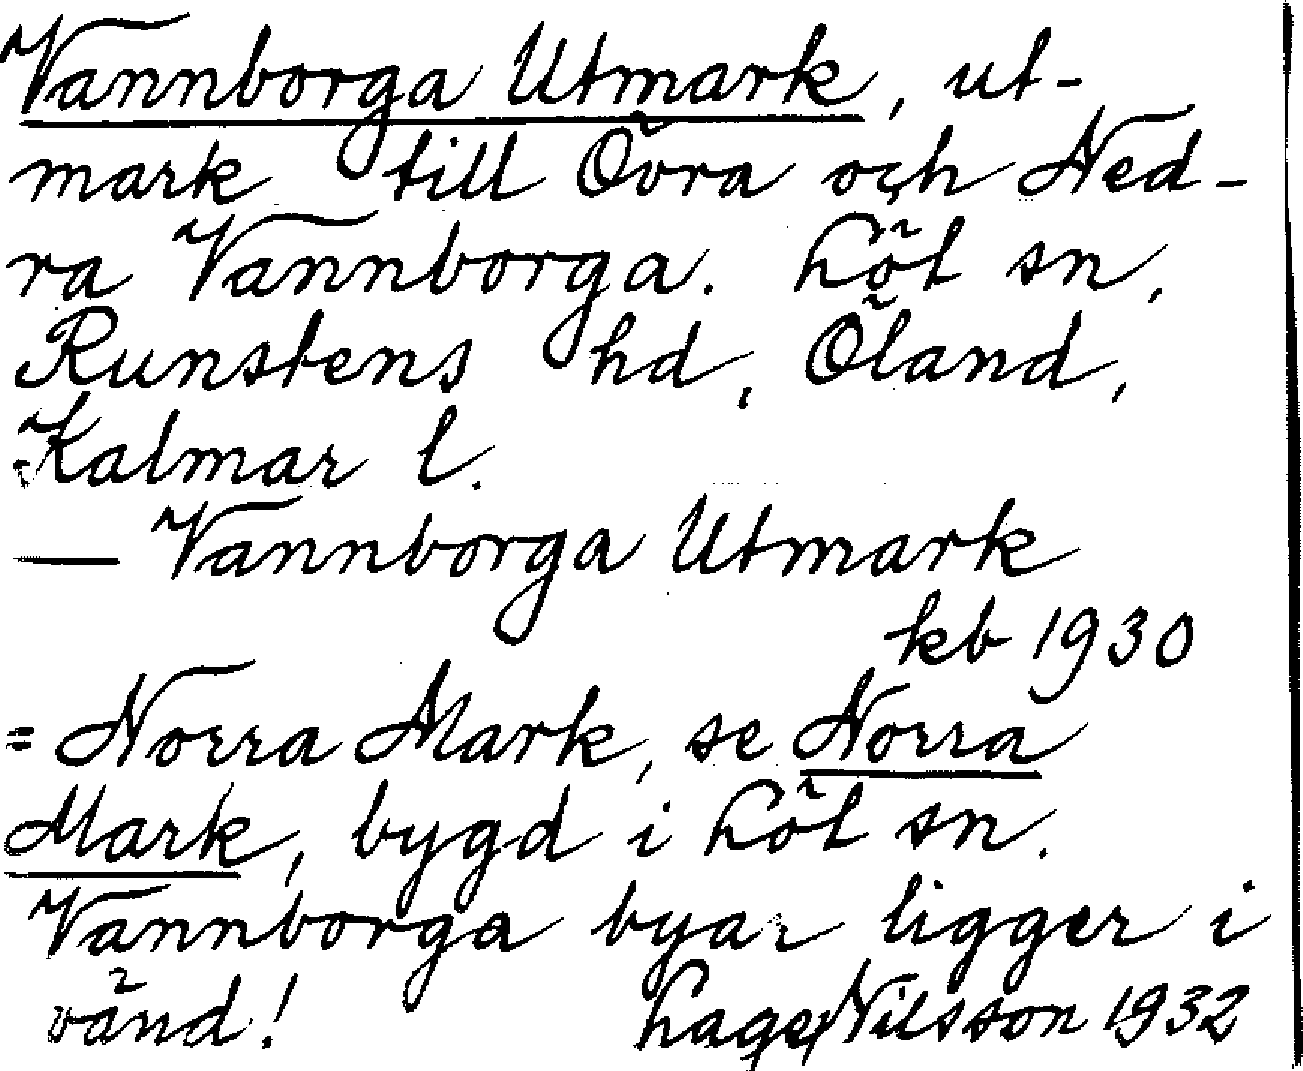 Vannborga Utmark, ut-
mark till Övra och Ned-
ra Vannborga. Löt sn,
Runstens hd, Öland,
Kalmar l.
— Vannborga Utmark
kb 1930
= Norra Mark, se Norra
Mark, bygd i Löt sn.
Vannborga byar ligger i
vänd! Lage Nilsson 1932